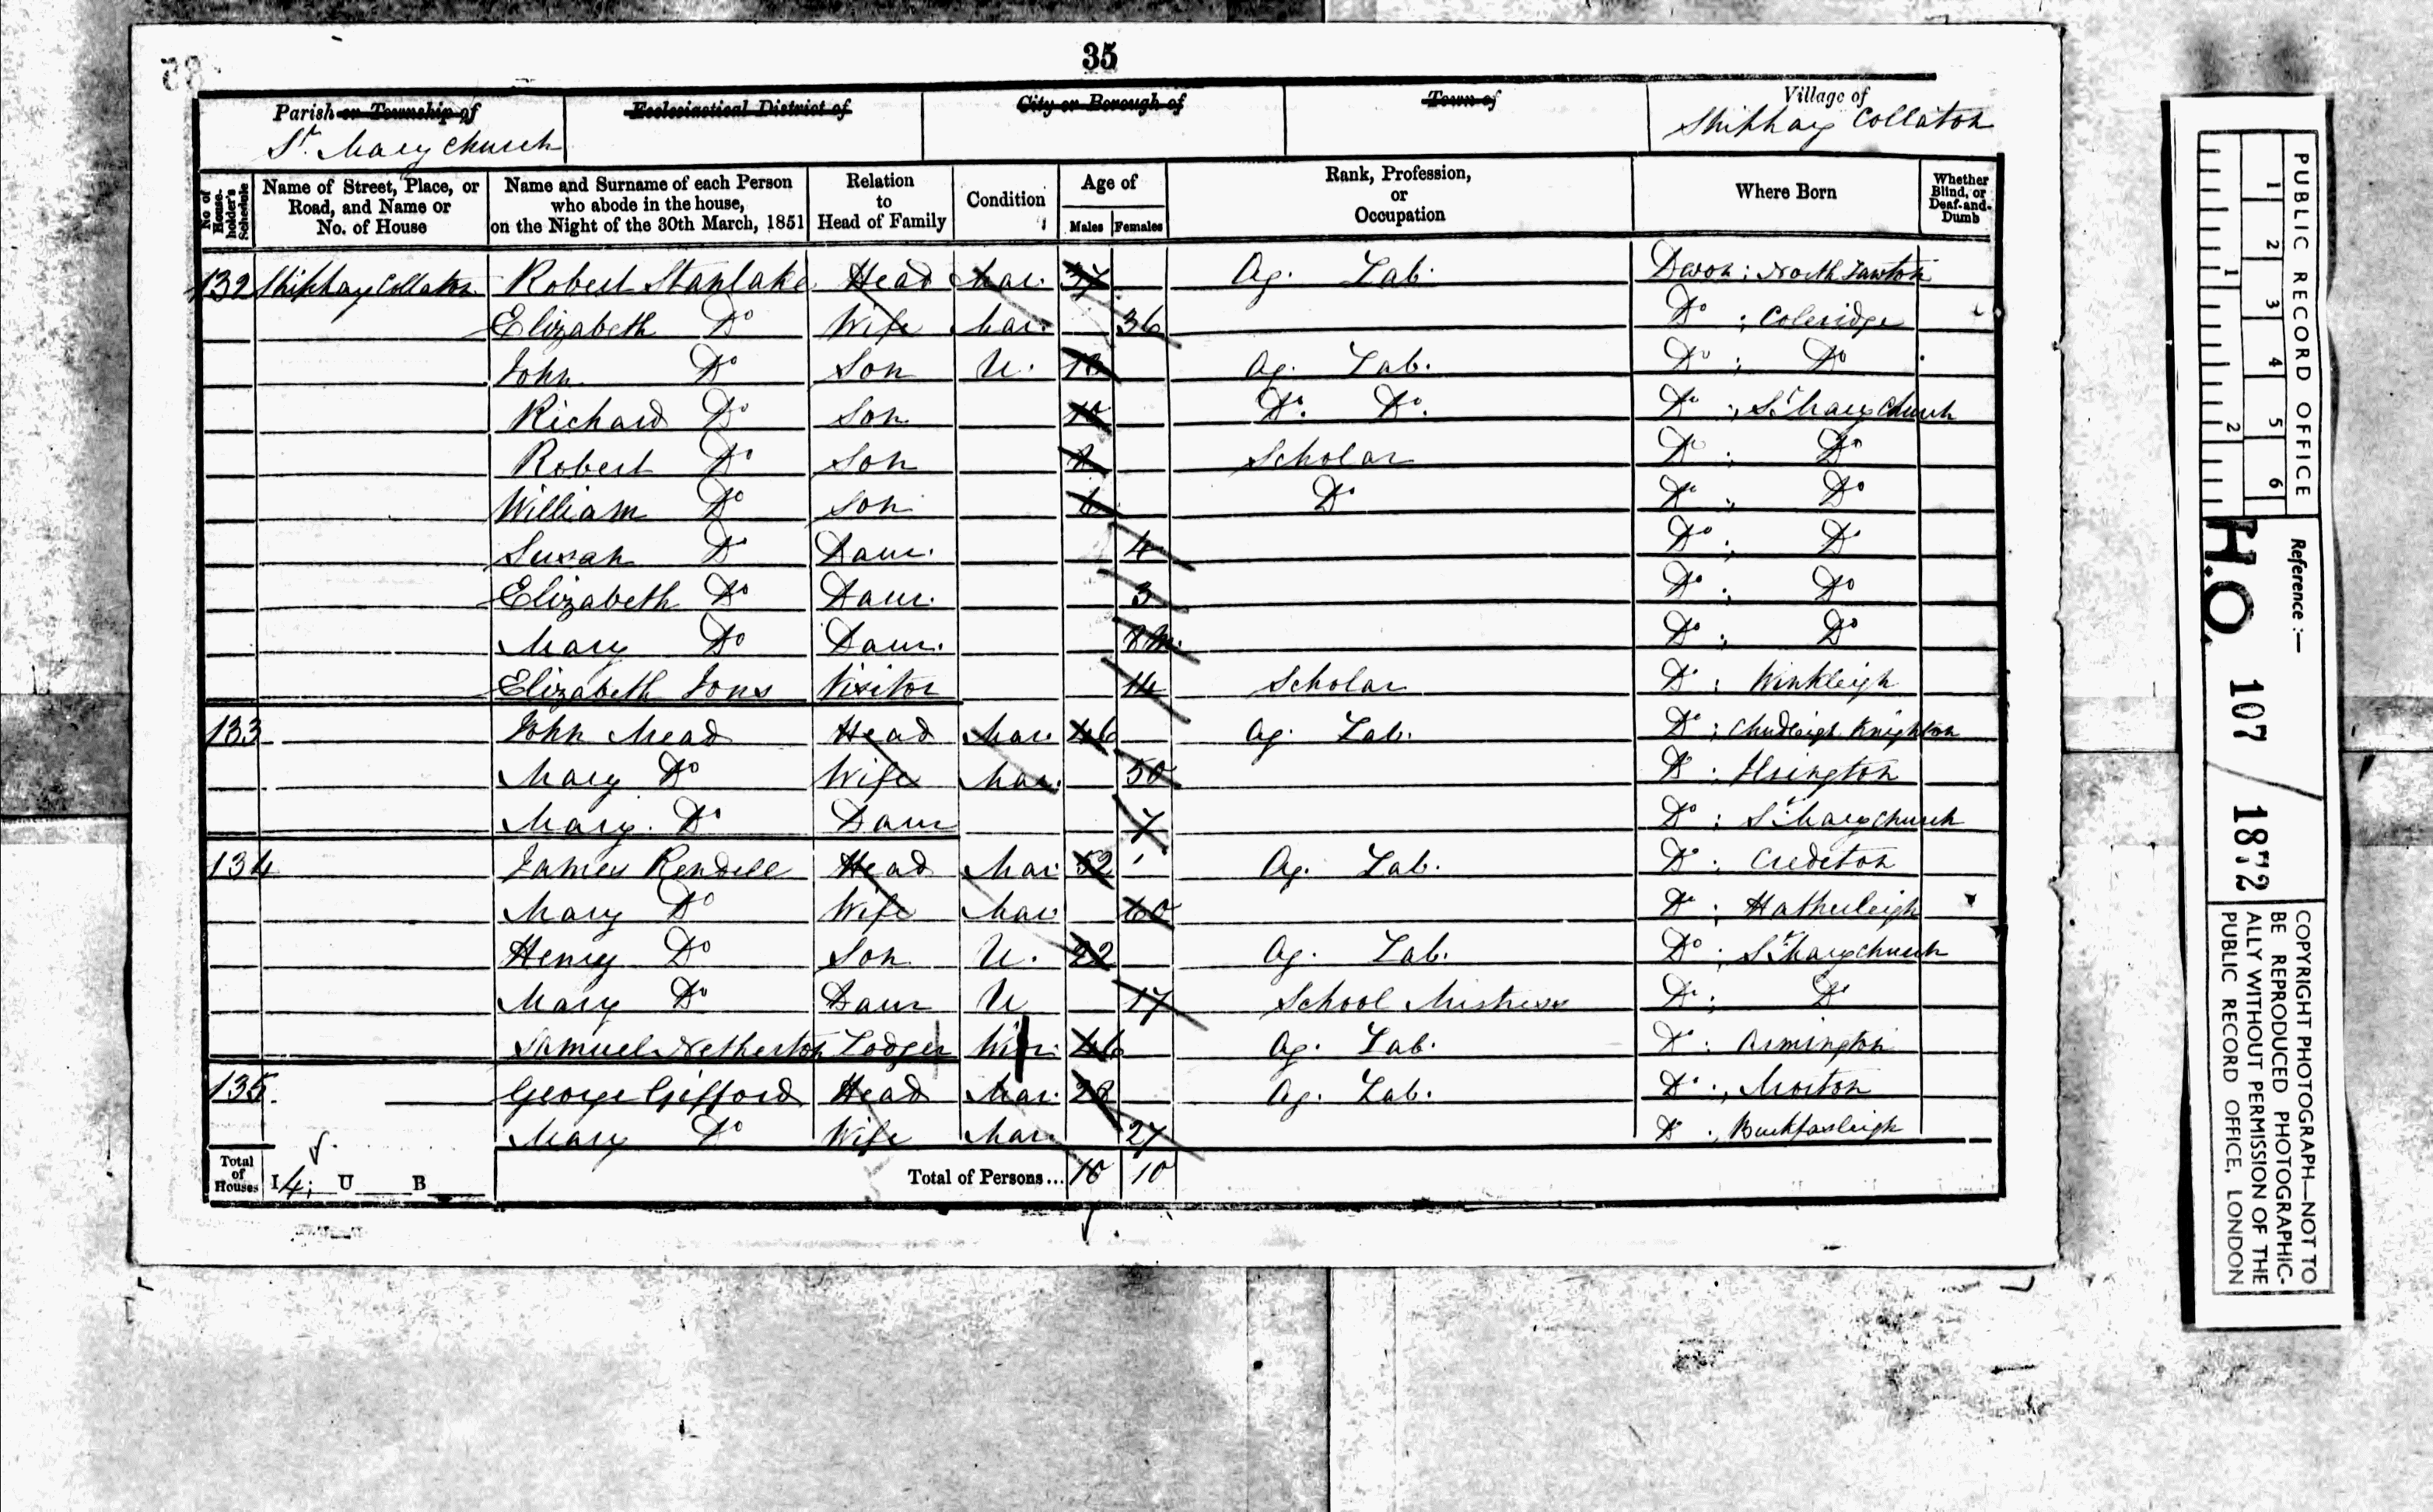 35
Parish or Township of | Ecclesiastical District of | City or Borough of | Town of | Village of
St. Mary Church | Shiphay Collaton
No. of House-holder's Schedule | Name of Street, Place, or Road, and Name or No. of House | Name and Surname of each Person who abode in the house, on the Night of the 30th March, 1851 | Relation to Head of Family | Condition | Age of Males | Females | Rank, Profession, or Occupation | Where Born | Whether Blind, or Deaf-and-Dumb
132 Shiphay Collaton Robert Stanlake Head Mar. 37 Ag. Lab. Devon; North Tawton
Elizabeth Do Wife Mar. 36 Do; Coleridge
John Do Son U. Ag. Lab. Do; Do
Richard Do Son 10 Do. Do. Do; St. Mary Church
Robert Do Son 8 Scholar Do; Do
William Do Son 6 Do Do; Do
Susan Do Daur. 4 Do; Do
Elizabeth Do Daur. 3 Do; Do
Mary Do Daur. 8m. Do; Do
Elizabeth Visitor 14 Scholar Do; Winkleigh
133 John Mead Head Mar. 46 Ag. Lab. Do; Chudleigh Knighton
Mary Do Wife Mar. 50 Do; Ilsington
Mary Do Daur 7 Do; St. Mary Church
134 James Rendell Head Mar 52 Ag. Lab. Do; Crediton
Mary Do Wife Mar. 60 Do; Hatherleigh
Henry Do Son U. 22 Ag. Lab. Do; St. Mary Church
Mary Do Daur U 17 School Mistress Do; Do
Samuel Netherton Lodger 46 Ag. Lab. Do; Armington
135. George Gifford Head Mar. 28 Ag. Lab. Do; Morton
Mary Do Wife Mar. 27 Do; Buckfasleigh
Total of Houses I 4; U B Total of Persons... 10 10
PUBLIC RECORD OFFICE
1 2 3 4 5 6
1 2
Reference :—
H.O. 107 / 1872
COPYRIGHT PHOTOGRAPH—NOT TO
BE REPRODUCED PHOTOGRAPHIC-
ALLY WITHOUT PERMISSION OF THE
PUBLIC RECORD OFFICE, LONDON